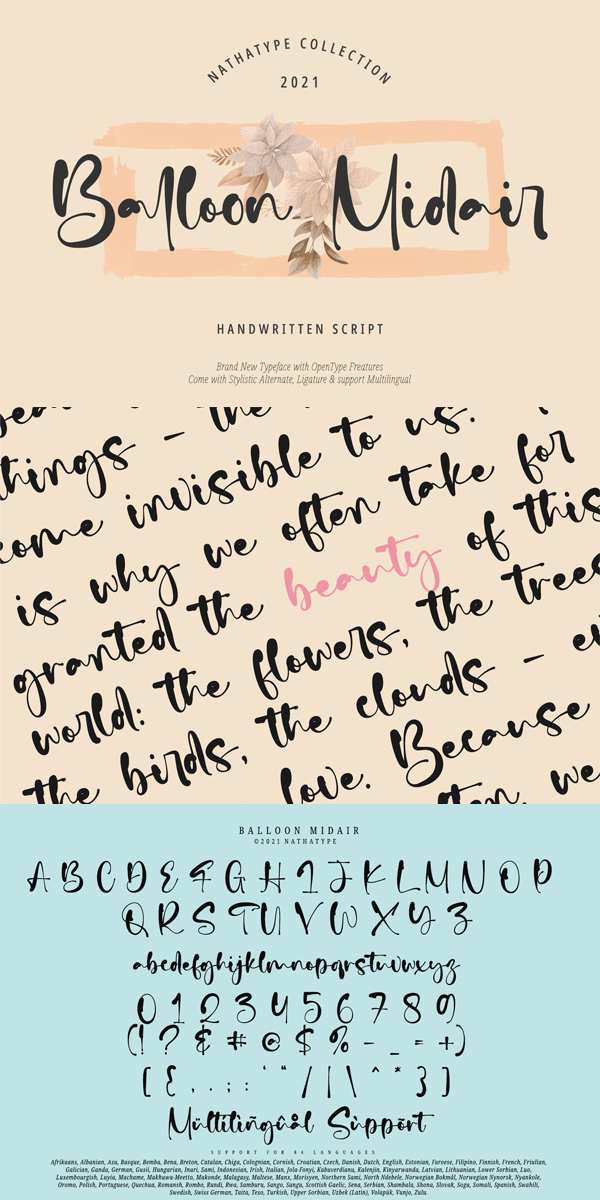 NATHATYPE COLLECTION
2021
Balloon Midair
HANDWRITTEN SCRIPT
Brand New Typeface with OpenType Freatures
Come with Stylistic Alternate, Ligature & support Multilingual
things – the
come invisible to us.
is why we often take for
granted the beauty of this
world: the flowers, the trees
the birds, the clouds – ev
love. Because
often, we
BALLOON MIDAIR
©2021 NATHATYPE
A B C D E F G H I J K L M N O P
Q R S T U V W X Y Z
abcdefghijklmnopqrstuvwxyz
0 1 2 3 4 5 6 7 8 9
( ! ? & # @ $ % - _ = + )
[ { , . ; : ' " / | \ ^ * } ]
Mültilingûål Sùppõrt
SUPPORT FOR 86 LANGUAGES
Afrikaans, Albanian, Asu, Basque, Bemba, Bena, Breton, Catalan, Chiga, Colognian, Cornish, Croatian, Czech, Danish, Dutch, English, Estonian, Faroese, Filipino, Finnish, French, Friulian,
Galician, Ganda, German, Gusii, Hungarian, Inari, Sami, Indonesian, Irish, Italian, Jola-Fonyi, Kabuverdianu, Kalenjin, Kinyarwanda, Latvian, Lithuanian, Lower Sorbian, Luo,
Luxembourgish, Luyia, Machame, Makhuwa-Meetto, Makonde, Malagasy, Maltese, Manx, Morisyen, Northern Sami, North Ndebele, Norwegian Bokmål, Norwegian Nynorsk, Nyankole,
Oromo, Polish, Portuguese, Quechua, Romansh, Rombo, Rundi, Rwa, Samburu, Sango, Sangu, Scottish Gaelic, Sena, Serbian, Shambala, Shona, Slovak, Soga, Somali, Spanish, Swahili,
Swedish, Swiss German, Taita, Teso, Turkish, Upper Sorbian, Uzbek (Latin), Volapük, Vunjo, Zulu.